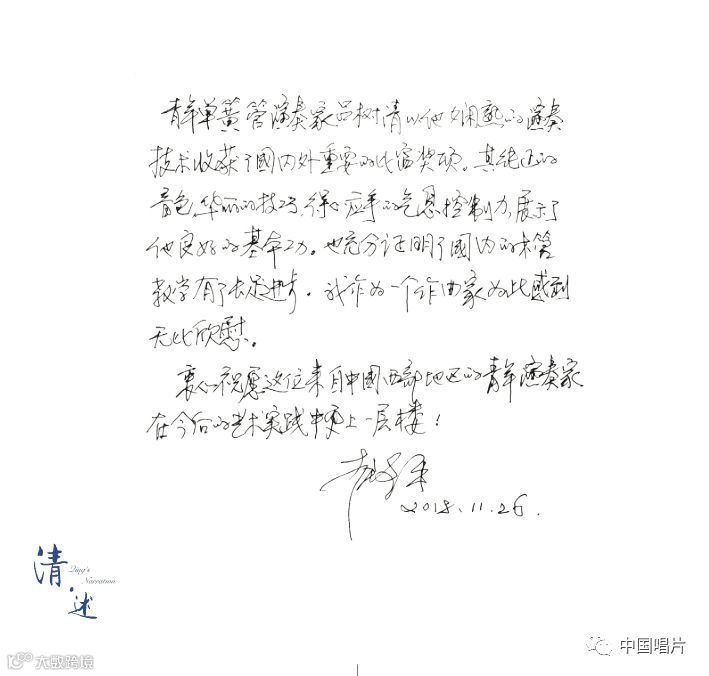 青年单簧管演奏家吕树清以他娴熟的演奏
技术收获了國内外重要的比赛奖项。其纯正的
音色,华丽的技巧,得心应手的气息控制力,展示了
他良好的基本功。也充分证明了國内的木管
教学有了长足进步。我作为一个作曲家为此感到
无比欣慰。
衷心祝愿这位来自中國西部地区的青年演奏家
在今后的艺术实践中更上一层楼!
2018.11.26.
清·述
Qing's
Narration
中国唱片
大数跨境